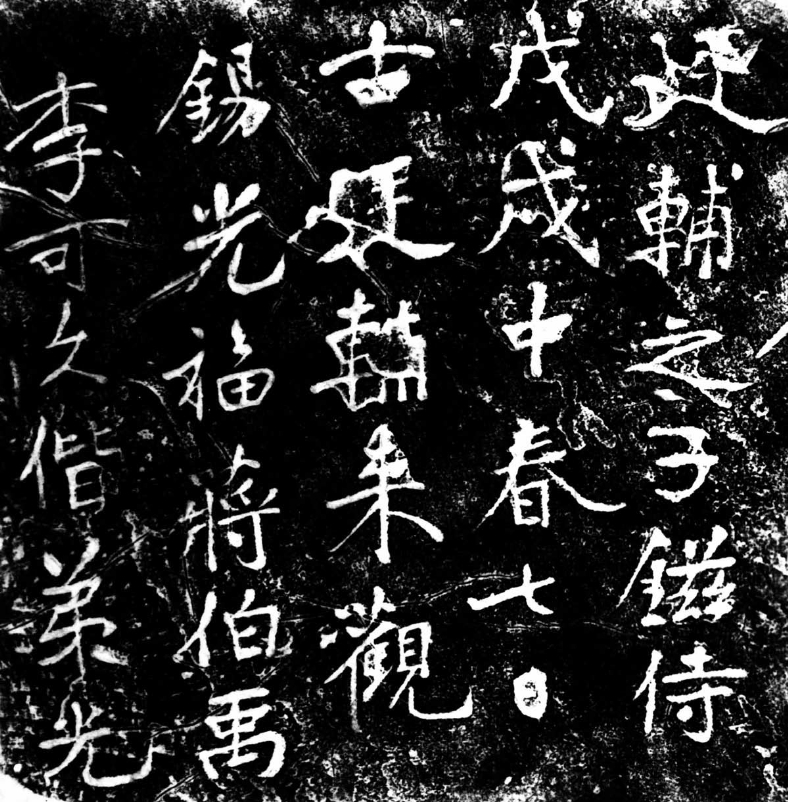 李可久偕弟光
錫光福將伯禹
古廷輔来觀
戊戌中春七日
廷輔之子鎡侍